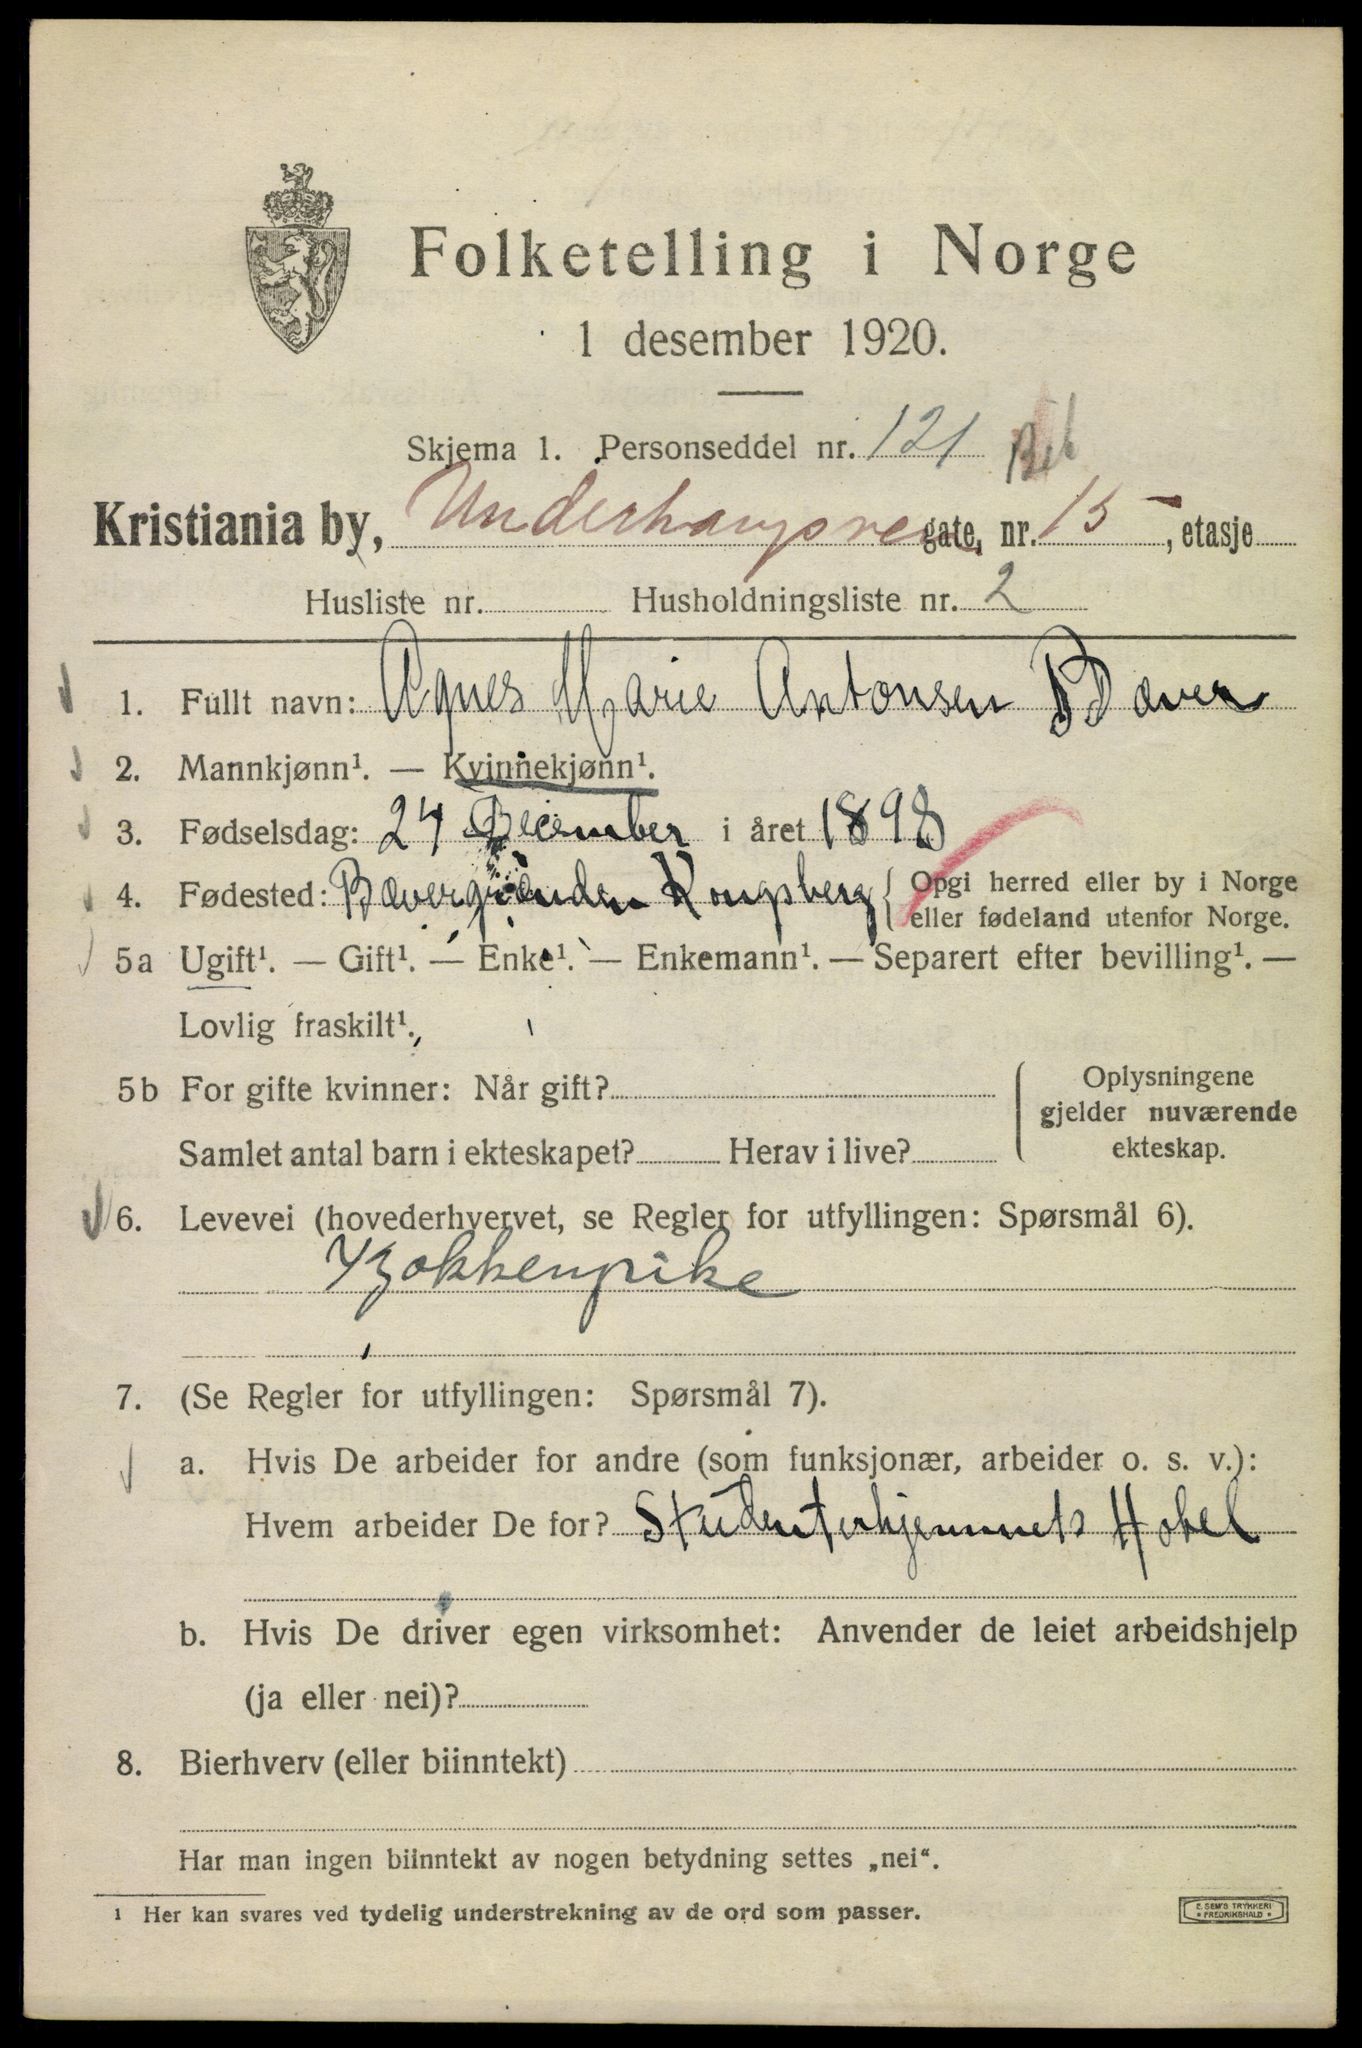 Folketelling i Norge
1 desember 1920.
Skjema 1. Personseddel nr. 121
Kristiania by, Underhaugsveien gate, nr. 15, etasje
Husliste nr. Husholdningsliste nr. 2
1. Fullt navn: Agnes Marie Antonsen Bæver
2. Mannkjønn¹. — Kvinnekjønn¹.
3. Fødselsdag: 24 December i året 1898
4. Fødested: Bævergrænden Kongsberg { Opgi herred eller by i Norge
eller fødeland utenfor Norge.
5a Ugift¹. — Gift¹. — Enke¹. — Enkemann¹. — Separert efter bevilling¹. —
Lovlig fraskilt¹.
5b For gifte kvinner: Når gift?
Samlet antal barn i ekteskapet? Herav i live?
Oplysningene
gjelder nuværende
ekteskap.
6. Levevei (hovederhvervet, se Regler for utfyllingen: Spørsmål 6).
Kjøkkenpike
7. (Se Regler for utfyllingen: Spørsmål 7).
a. Hvis De arbeider for andre (som funksjonær, arbeider o. s. v.):
Hvem arbeider De for? Studenterhjemmets Hotel
b. Hvis De driver egen virksomhet: Anvender de leiet arbeidshjelp
(ja eller nei)?
8. Bierhverv (eller biinntekt)
Har man ingen biinntekt av nogen betydning settes „nei“.
¹ Her kan svares ved tydelig understrekning av de ord som passer.
E. SEM'S TRYKKERI
* FREDRIKSHALD *